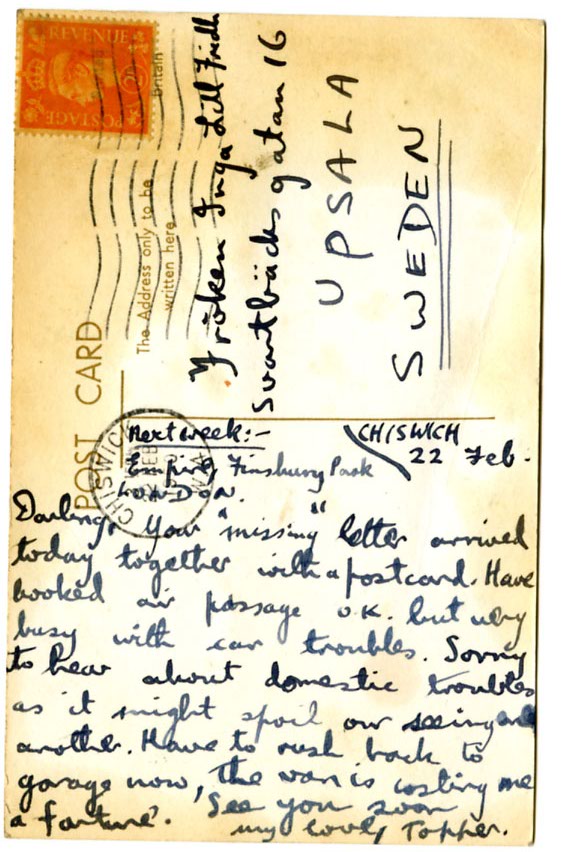 REVENUE
POSTAGE
POST CARD
The Address only to be
written here
Britain
CHISWICK
Fröken Inga Lill Fridh
Svartbäcksgatan 16
UPSALA
SWEDEN
Next week:-
Empire, Finsbury Park
LONDON.
CHISWICH
22 Feb.
Darling, Your "missing" letter arrived
today together with a postcard. Have
booked air passage O.K. but very
busy with car troubles. Sorry
to hear about domestic troubles
as it might spoil our seeing one
another. Have to rush back to
garage now, the van is costing me
a fortune. See you soon
my love, Topper.